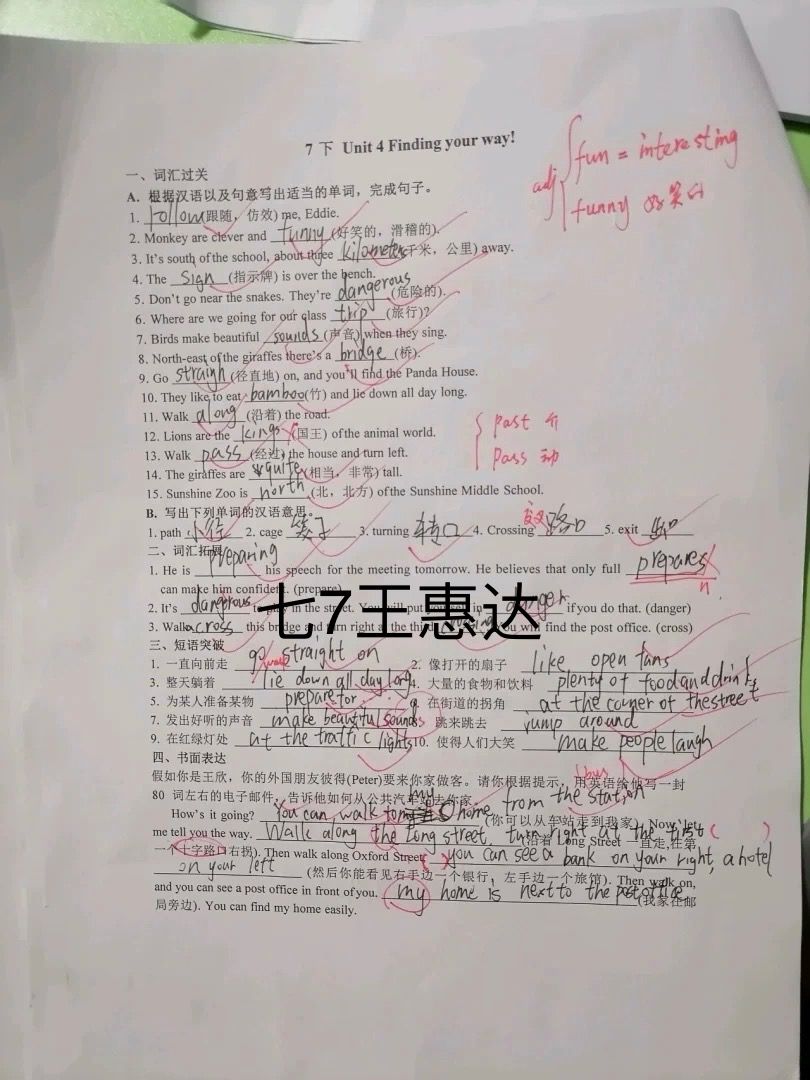 7 下 Unit 4 Finding your way!
adj fun = interesting
funny 好笑的
一、词汇过关
A. 根据汉语以及句意写出适当的单词，完成句子。
1. Follow(跟随，仿效) me, Eddie.
2. Monkey are clever and funny (好笑的，滑稽的).
3. It's south of the school, about three kilometers(千米，公里) away.
4. The sign (指示牌) is over the bench.
5. Don't go near the snakes. They're dangerous (危险的).
6. Where are we going for our class trip (旅行)?
7. Birds make beautiful sounds (声音) when they sing.
8. North-east of the giraffes there's a bridge (桥).
9. Go straigh (径直地) on, and you'll find the Panda House.
10. They like to eat bamboo(竹) and lie down all day long.
11. Walk along (沿着) the road.
12. Lions are the kings (国王) of the animal world.
past 介
pass 动
13. Walk pass (经过) the house and turn left.
14. The giraffes are quite (相当，非常) tall.
15. Sunshine Zoo is north (北，北方) of the Sunshine Middle School.
B. 写出下列单词的汉语意思。
1. path 小径 2. cage 笼子 3. turning 转口 4. Crossing 交叉路口 5. exit 出口
二、词汇拓展
1. He is preparing his speech for the meeting tomorrow. He believes that only full prepares n
can make him confident. (prepare)
2. It's dangerous to play in the street. You will put danger if you do that. (danger)
3. Walk across this bridge and turn right at the third You will find the post office. (cross)
七7王惠达
三、短语突破
1. 一直向前走 go straight on 2. 像打开的扇子 like open fans
walk
3. 整天躺着 lie down all day long 4. 大量的食物和饮料 plenty of food and drinks
5. 为某人准备某物 prepare for 6. 在街道的拐角 at the corner of the street
7. 发出好听的声音 make beautiful sounds 8. 跳来跳去 jump around
9. 在红绿灯处 at the traffic lights 10. 使得人们大笑 make people laugh
四、书面表达
假如你是王欣，你的外国朋友彼得(Peter)要来你家做客。请你根据提示，用英语给他写一封
80 词左右的电子邮件，告诉他如何从公共汽车站去你家。
bus
How's it going? You can walk to my home from the station (你可以从车站走到我家). Now let
me tell you the way. Walk along the Long street, turn right at the first ( ) (沿着 Long Street 一直走,在第
一个十字路口右拐). Then walk along Oxford Street, you can see a bank on your right, a hotel
on your left (然后你能看见右手边一个银行，左手边一个旅馆). Then walk on,
and you can see a post office in front of you. my home is next to the post office (我家在邮
局旁边). You can find my home easily.